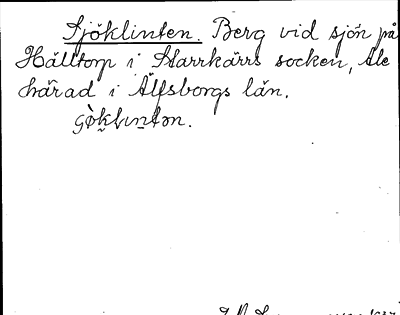 Sjöklinten. Berg vid sjön på
Hälltorp i Starrkärrs socken, Ale
härad i Älfsborgs län.